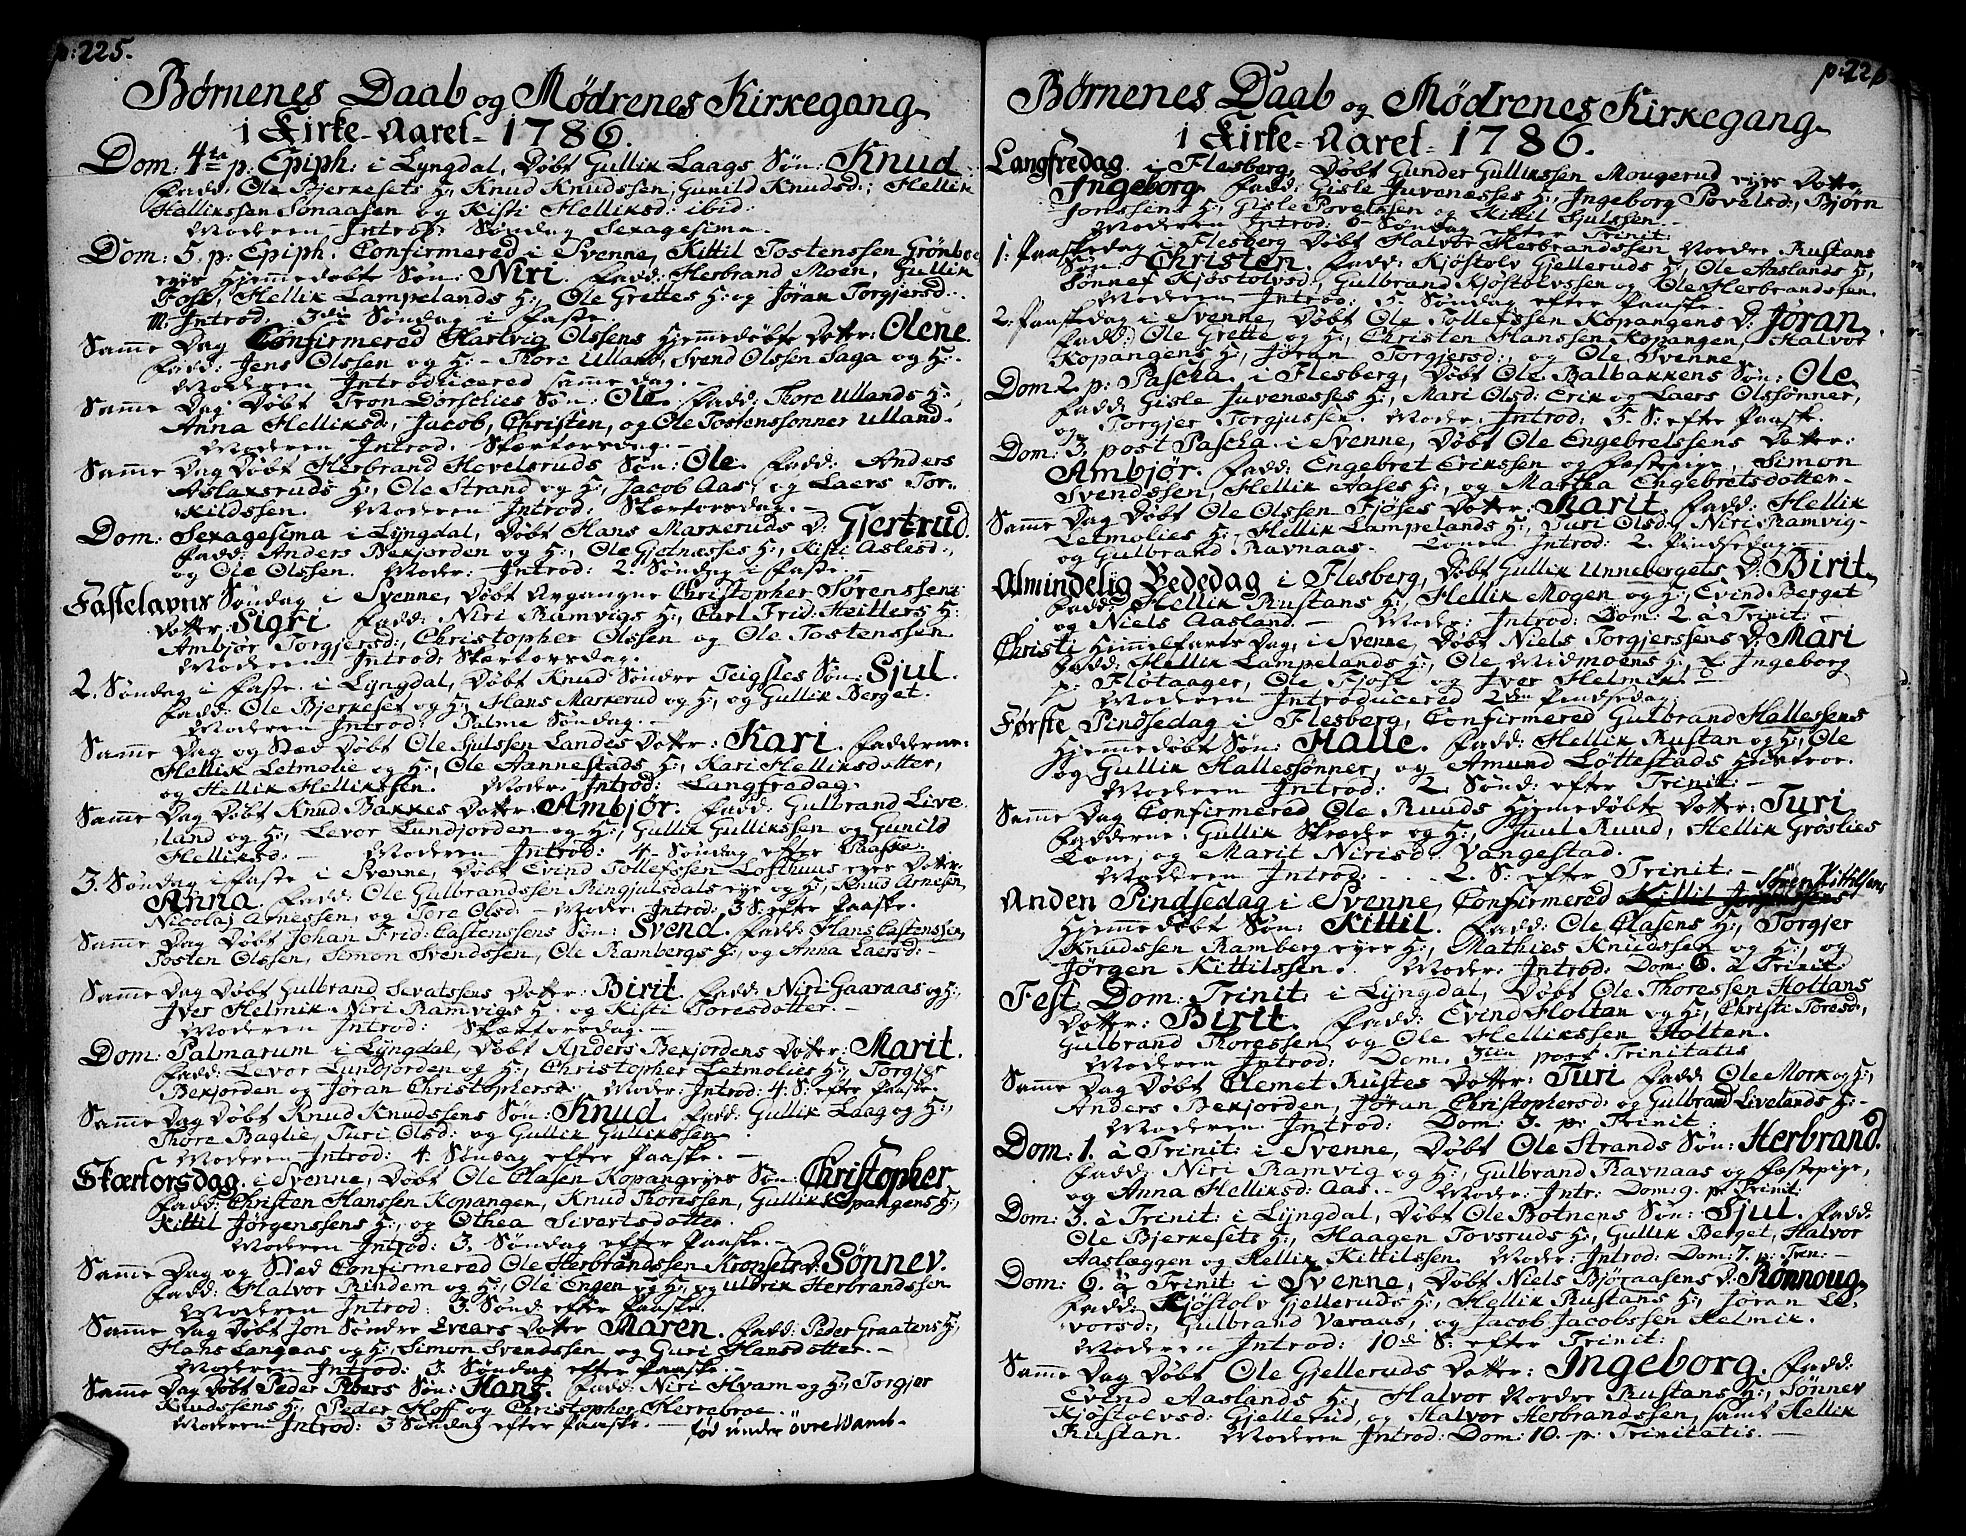 p: 225.
Børnenes Daab og Mødrenes Kirkegang
i Kirke-Aaret 1786.
Dom: 4ta p: Epiph: i Lyngdal, Døbt Gullik Laags Søn: Knud
Fadd: Ole Bjerkesets H:, Knud Knudssen, Gunild Knudsd:, Hellik
Hallikssen Sønaasen og Kisti Helliksd: ibid:
Moderen Introd: Søndag Sexagesima.
Dom: 5. p: Epiph. Confirmered i Svenne, Kittil Tostenssen Grønboe
eyes Hjemmedøbt Søn: Niri. Fadd: Herbrand Moen, Gullik
Fost, Hellik Lampelands H:, Ole Grettes H: og Jøran Torgjersd:
M: Introd. 3die Søndag i Faste.
Samme Dag Confirmered Hartvig Olssens Hjemmedøbte Dotter: Olene
Fadd: Jens Olssen og H: - Thore Ulland, Svend Olssen Saga og H:
Moderen Introducered samme dag.
Samme Dag Døbt Tron Dorschies Søn: Ole. Fadd: Thore Ullands H:,
Anna Helliksd:, Jacob, Christen, og Ole Tostenssønner Ulland.
Moderen Introd. Skærtorsdag.
Samme Dag Døbt Herbrand Hovelsruds Søn: Ole. Fadd: Anders
Aslaksruds H:, Ole Strand og H:, Jacob Aas, og Laers Tor-
kildssen. Moderen Introd: Skærtorsdag.
Dom: Sexagesima i Lyngdal, Døbt Hans Markeruds D: Gjertrud.
Fadd: Anders Bekjorden og H:, Ole Gjelnæsses H:, Kisti Aslesd:,
og Ole Olssen. Moder: Introd: 2. Søndag i Faste.
Fastelavns Søndag i Svenne, Døbt Avgangne Christopher Sørenssens
Dotter Sigri. Fadd: Niri Ramvigs H:, Carl Frid: Heitlers H:
Ambjør Torgjersd:, Christopher Olssen og Ole Tostenssen
Moderen Introd: Skærtorsdag.
2. Søndag i Faste. i Lyngdal, Døbt Knud Søndre Teigstes Søn: Sjul.
Fadd: Ole Bjerkeset og H:, Hans Markerud og H:, og Gullik Berget.
Moderen Introd: Palme Søndag.
Samme Dag og Stæd Døbt Ole Sjulssen Landes Dotter: Kari. Fadderne:
Hellik Letmolie og H:, Ole Aannestads H:, Kari Helliksdotter,
og Hellik Hellikssen. Moder: Introd: Langfredag.
Samme Dag Døbt Knud Bakkes Dotter: Ambjør. Fadd: Gulbrand Live-
land og H:, Levor Lundjorden og H:, Gullik Gullikssen og Gunild
Helliksd:. Moderen Introd: 4. Søndag efter Paaske.
3. Søndag i Faste i Svenne, Døbt Evind Tollefssen Lofthuus eyes Dotter
Anna. Fadd: Ole Gulbrandssen Ringjulsdals eye og H:, Jens Arnesen,
Nicolaj Arnessen, og Tore Olsd: - Moder: Introd: 3 S: efter Paaske.
Samme Dag Døbt Johan Frid: Castenssens Søn: Svend. Fadd: Hans Castenssen
Tosten Olssen, Simon Svendssen, Ole Rambergs H:, og Anna Laersd:
Samme Dag Døbt Gulbrand Sevatssens Dotter: Birit. Fadd: Niri Gaaraas og H:,
Iver Helmik. Niri Ramvigs H: og Kisti Toresdotter.
Moderen Introd: Skærtorsdag.
Dom: Palmarum i Lyngdal, Døbt Anders Bekjordens Dotter: Marit.
Fadd: Levor Lundjorden og H:, Christopher Letmolies H:, Torgjer
Bekjorden og Jøran Christophersd: Moder: Introd: 4. S: efter Paaske.
Samme Dag Døbt Knud Knudssens Søn: Knud. Fadd: Gullik Laag og H:,
Thore Baglie, Turi Olsd: og Gullik Gullikssen.
Moderen Introd: 4. Søndag efter Paaske.
Skærtorsdag i Svenne, Døbt Ole Clasen Kopangeyes Søn: Christopher
Fadd: Christen Hanssen Kopangen, Knud Thorissen, Gullik Kopangens H:,
Kittil Jørgenssens H:, og Othea Sivertsdotter.
Moderen Introd: 3. Søndag efter Paaske.
Samme Dag og Stæd Confirmered Ole Herbrandssen Kronset D: Sønnev.
Fadd: Halvor Rindem og H:, Ole Engen og H: og Uldrik Herbrandssen
Moderen Introd: 3. Sønd: efter Paaske.
Samme Dag Døbt Jon Søndre Evears Dotter Maren. Fadd: Peder Graatens H:,
Hans Langaas og H:, Simon Svendssen og Guri Hansdotter.
Moderen Introd: 3. Søndag efter Paaske.
Samme Dag Døbt Peder Pibers Søn: Hans. Fadd: Niri Hvam og H:, Torgjer
Knudssens H:, Peder Hoff og Christopher Herrebroe.
Moderen Introd: 3 Søndag efter Paaske. - fød under øvre Wamb.
p: 226
Børnenes Daab og Mødrenes Kirkegang
i Kirke-Aaret 1786.
Langfredag. i Flesberg, Døbt Gunder Gullikssen Mougerud eyes Dotter
Ingeborg. Fadd: Gisle Juvenæsses H:, Ingeborg Povelsd:, Bjørn
Jonssens H:, Gisle Povelssen og Kittil Sjulssen.
Moderen Introd: 6 Søndag efter Trinit:
1. Paaskedag i Flesberg Døbt Halvor Herbrandssen Nordre Rustans
Søn: Christen. Fadd: Kjøstolv Gjelleruds H:, Ole Aaslands H:,
Sønnef Kjøstolvsd:, Gulbrand Kjøstolvssen og Ole Herbrandssen.
Moderen Introd: 5 Søndag efter Paaske.
2. Paaskedag i Svenne, Døbt Ole Tollefssen Kopangens D: Jøran.
Fadd: Ole Grette og H:, Christen Hanssen Kopangen, Halvor
Kopangens H:, Jøran Torgjersd:, og Ole Svenne.
Dom 2 p: Pascha. i Flesberg, Døbt Ole Balbakkens Søn: Ole.
Fadd: Gisle Juvenæsses H:, Mari Olsd: Erik og Laers Olssønner,
og Torgjer Torgjussen. Moder: Introd: 5. S: efter Paaske.
Dom: 3. post Pascha. i Svenne, Døbt Ole Engebretssens Dotter:
Ambjør. Fadd: Engebret Erikssen og Fæstepige, Simon
Svendssen, Hellik Aases H:, og Martha Engebretsdotter.
Samme Dag Døbt Ole Olssen Fjøses Dotter: Marit. Fadd: Hellik
Letmolies H:, Hellik Lampelands H:, Turi Olsd:, Niri Ramvig
og Gulbrand Ravnaas. Konen Introd: 2. Pindsedag.
Almindelig Bededag i Flesberg, Døbt Gullik Unnebergets D: Birit.
Fadd: Hellik Rustans H:, Hellik Mogen og H:, Evind Berget
og Niels Aasland. Moder: Introd: Dom: 2 à Trinit:
Christi Himmelfarts Dag, i Svenne, Døbt Niels Torgjerssens D: Mari
Fadd: Hellik Lampelands H:, Ole Midmoens H:, Ingeborg
p: Fløtaager, Ole Fjøst og Iver Helmik.
Moderen Introducered 2den Pindsedag.
Første Pindsedag i Flesberg, Confirmered Gulbrand Hallessens
Hjemmedøbt Søn: Halle. Fadd: Hellik Rustan og H:, Ole
og Gullik Hallessønner, og Amund Løttestads Hustroe.
Moderen Introd: 2. Sønd: efter Trinit:
Samme Dag Confirmered Ole Ruuds Hjemmedøbte Dotter: Turi
Fadderne: Gullik Stræde og H:, Juul Ruud, Hellik Grøslies
Kone, og Marit Nirisd: Vangestad.
Moderen Introd: . . . 2. S: efter Trinit:
Søren Kittilsens
Anden Pindsedag i Svenne, Confirmered Kittil Jørgenssens
Hjemmedøbt Søn: Kittil. Fadd: Ole Clasens H:, Torgjer
Knudssen Ramberg eyes H:, Mathies Knudssen og H:, og
Jørgen Kittilssen. Moder: Introd: Dom: 6. à Trinit:
Fest. Dom: Trinit: i Lyngdal, Døbt Ole Thoressen Holtans
Dotter: Birit. Fadd: Evind Holtan og H:, Christi Toresd:,
Gulbrand Thoressen, og Ole Hellikssen Holten.
Moderen Introd: Dom. 3tia post Trinitatis
Samme Dag Døbt Clemet Rustes Dotter: Turi Fadd: Ole Mork og H:,
Anders Bekjorden, Jøran Christophersd: og Gulbrand Livelands H:
Moderen Introd: Dom: 3. p: Trinit:
Dom: 1. à Trinit: i Svenne, Døbt Ole Strands Søn: Herbrand.
Fadd: Niri Ramvig og H:, Gulbrand Ravnaas og Fæstepige,
og Anna Helliksd: Aas. Moder: Intr: Dom: 9. p: Trinit:
Dom: 3. à Trinit: i Lyngdal, Døbt Ole Botnens Søn: Sjul. Fadd:
Ole Bjerkesets H:, Haagen Tovsruds H:, Gullik Berget, Halvor
Aaslæggen og Hellik Kittilssen. Moder: Introd: Dom: 7. p: Trin:
Dom: 6. à Trinit: i Svenne, Døbt Niels Bjøraasens D: Rønnoug.
Fadd: Kjøstolv Gjelleruds H:, Hellik Rustans H:, Jøran Le-
vorsd:, Gulbrand Varaas, og Jacob Jacobssen Helmik.
Moderen Introd: 10de S: efter Trinit:
Samme Dag Døbt Ole Gjelleruds Dotter: Ingeborg. Fadd:
Evind Aaslands H:, Halvor Nordre Rustans H:, Sønnev
Kjøstolvsd: Gjellerud, og Halvor Herbrandssen, samt Hellik
Rustan. Moderen Introd: Dom: 10. p: Trinitatis.